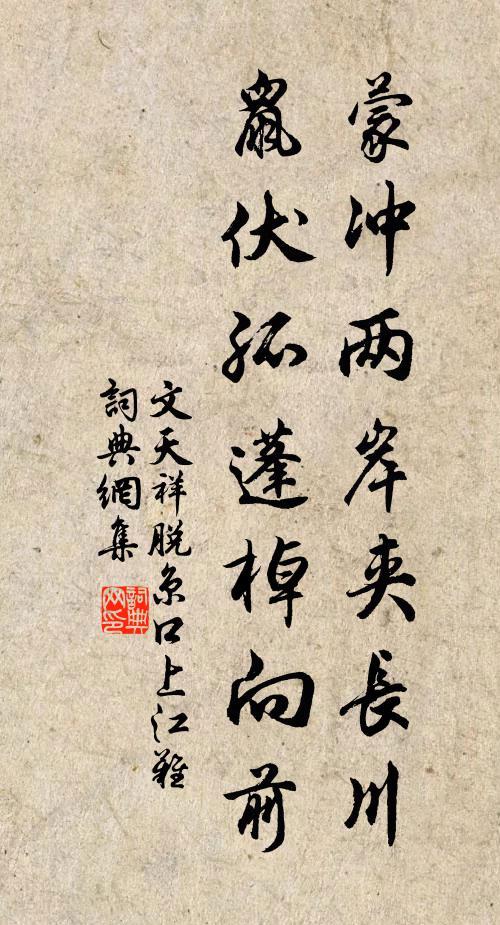 蒙冲两岸夹長川
鼠伏孤蓬棹向前
文天祥脱京口上江難
詞典網集
詞典网印